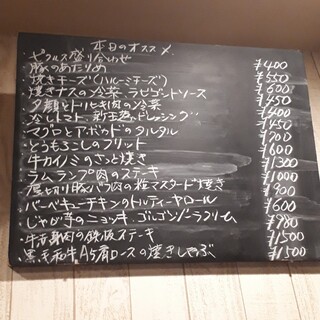 本日のオススメ
・ピクルス盛り合わせ ¥400
・豚のあたりめ ¥550
・焼きチーズ(ハルーミチーズ) ¥600
・焼きナスの冷菜 ラビゴットソース ¥450
・夕顔とトルキ肉の冷菜 ¥400
・冷しトマト 新玉ねぎドレッシング ¥450
・マグロとアボカドのタルタル ¥700
・とうもろこしのフリット ¥600
・牛カイノミのさっと焼き ¥1300
・ラムランプ肉のステーキ ¥1000
・厚切り豚バラ肉の粒マスタード焼き ¥900
・バーベキューチキンのトルティーヤロール ¥600
・じゃが芋のニョッキ ゴルゴンゾーラクリーム ¥980
・牛赤身肉の鉄板ステーキ ¥1500
・黒毛和牛A5肩ロースの焼きしゃぶ ¥1500